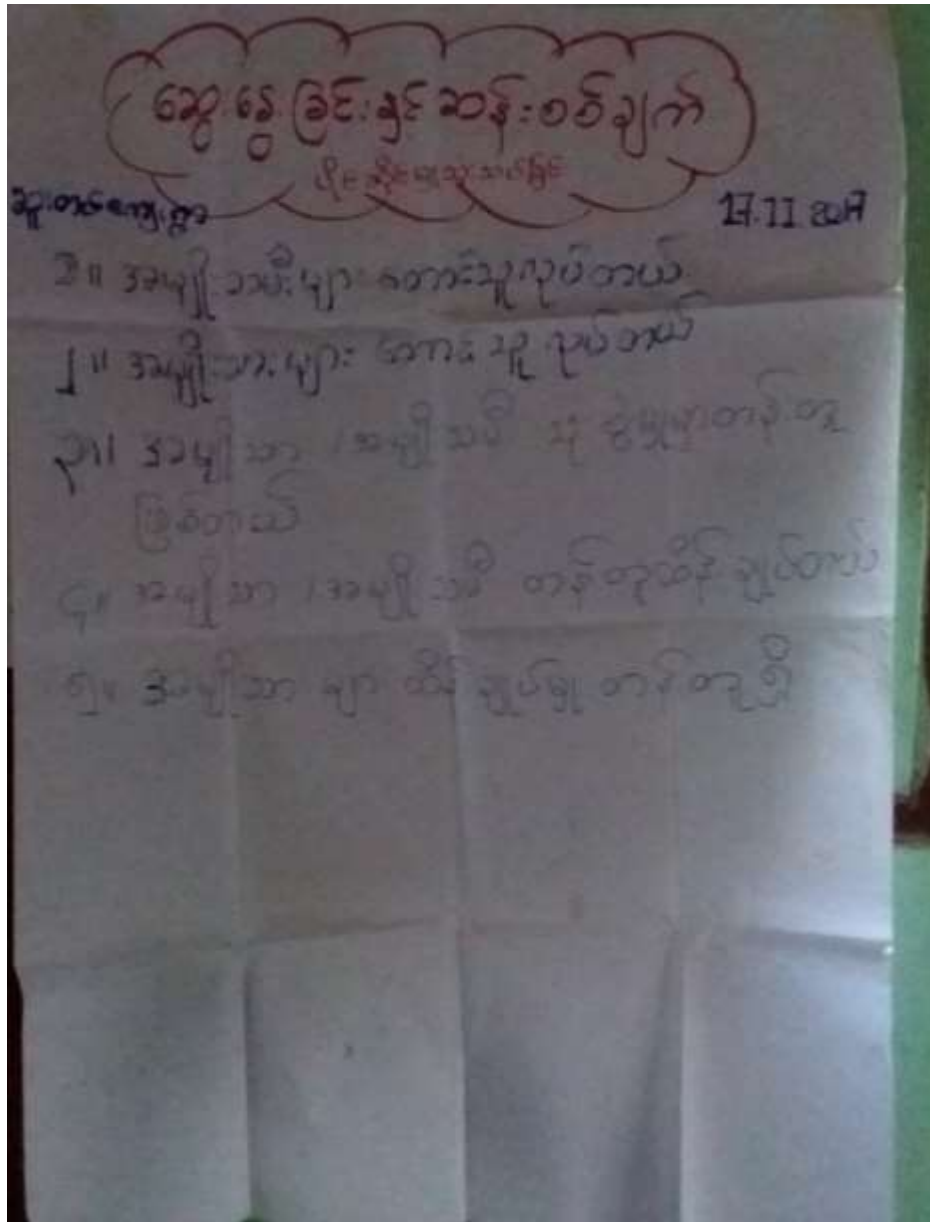 ဆွေးနွေးခြင်းနှင့် ဆန်းစစ်ချက်
17.11.2017
၁။ အမျိုးသမီးများ တောင်သူလုပ်တယ်
၂။ အမျိုးသားများ တောင်သူလုပ်တယ်
၃။ အမျိုသာ /အမျိုသမီ တန်တူ
ဖြစ်တယ်
၄။ အမျိုသာ /အမျိုသမီ တန်တူထိန်ချုပ်တယ်
၅။ အမျိုသာ များ ထိန်ချုပ်မှု တန်တူရှိ